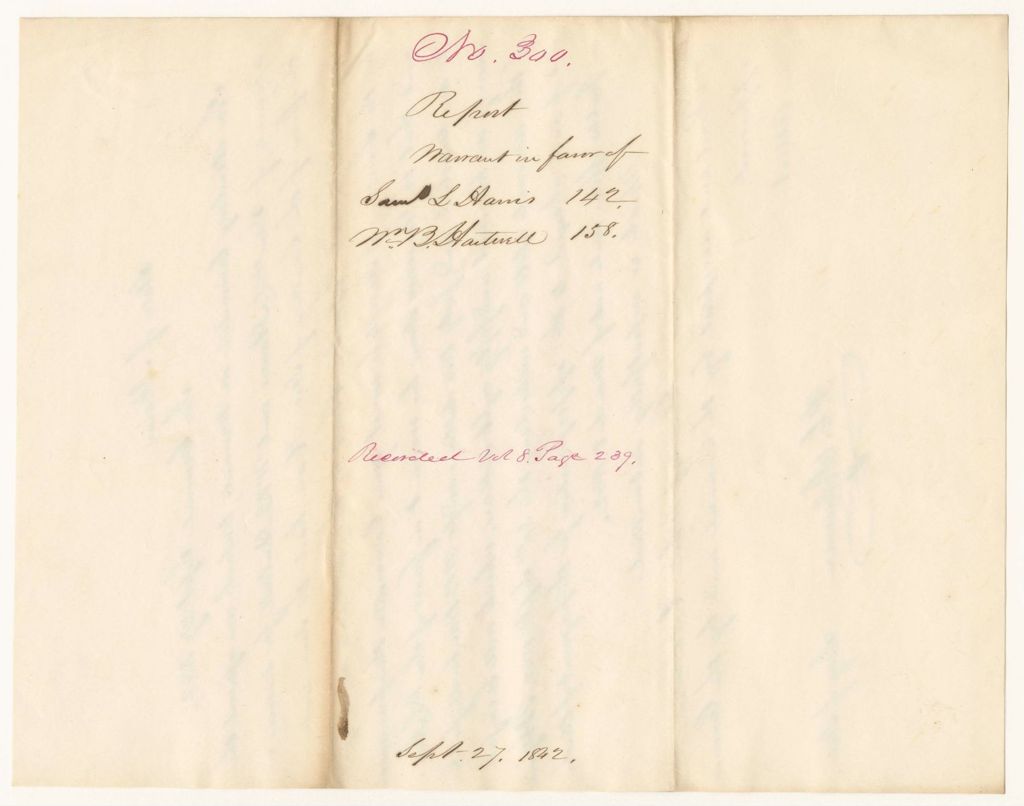 No. 300.
Report
Warrant in favor of
Saml L Harris 142.
Wm. B. Hartwell 158.
Recorded Vol 8. Page 239.
Sept. 27. 1842.